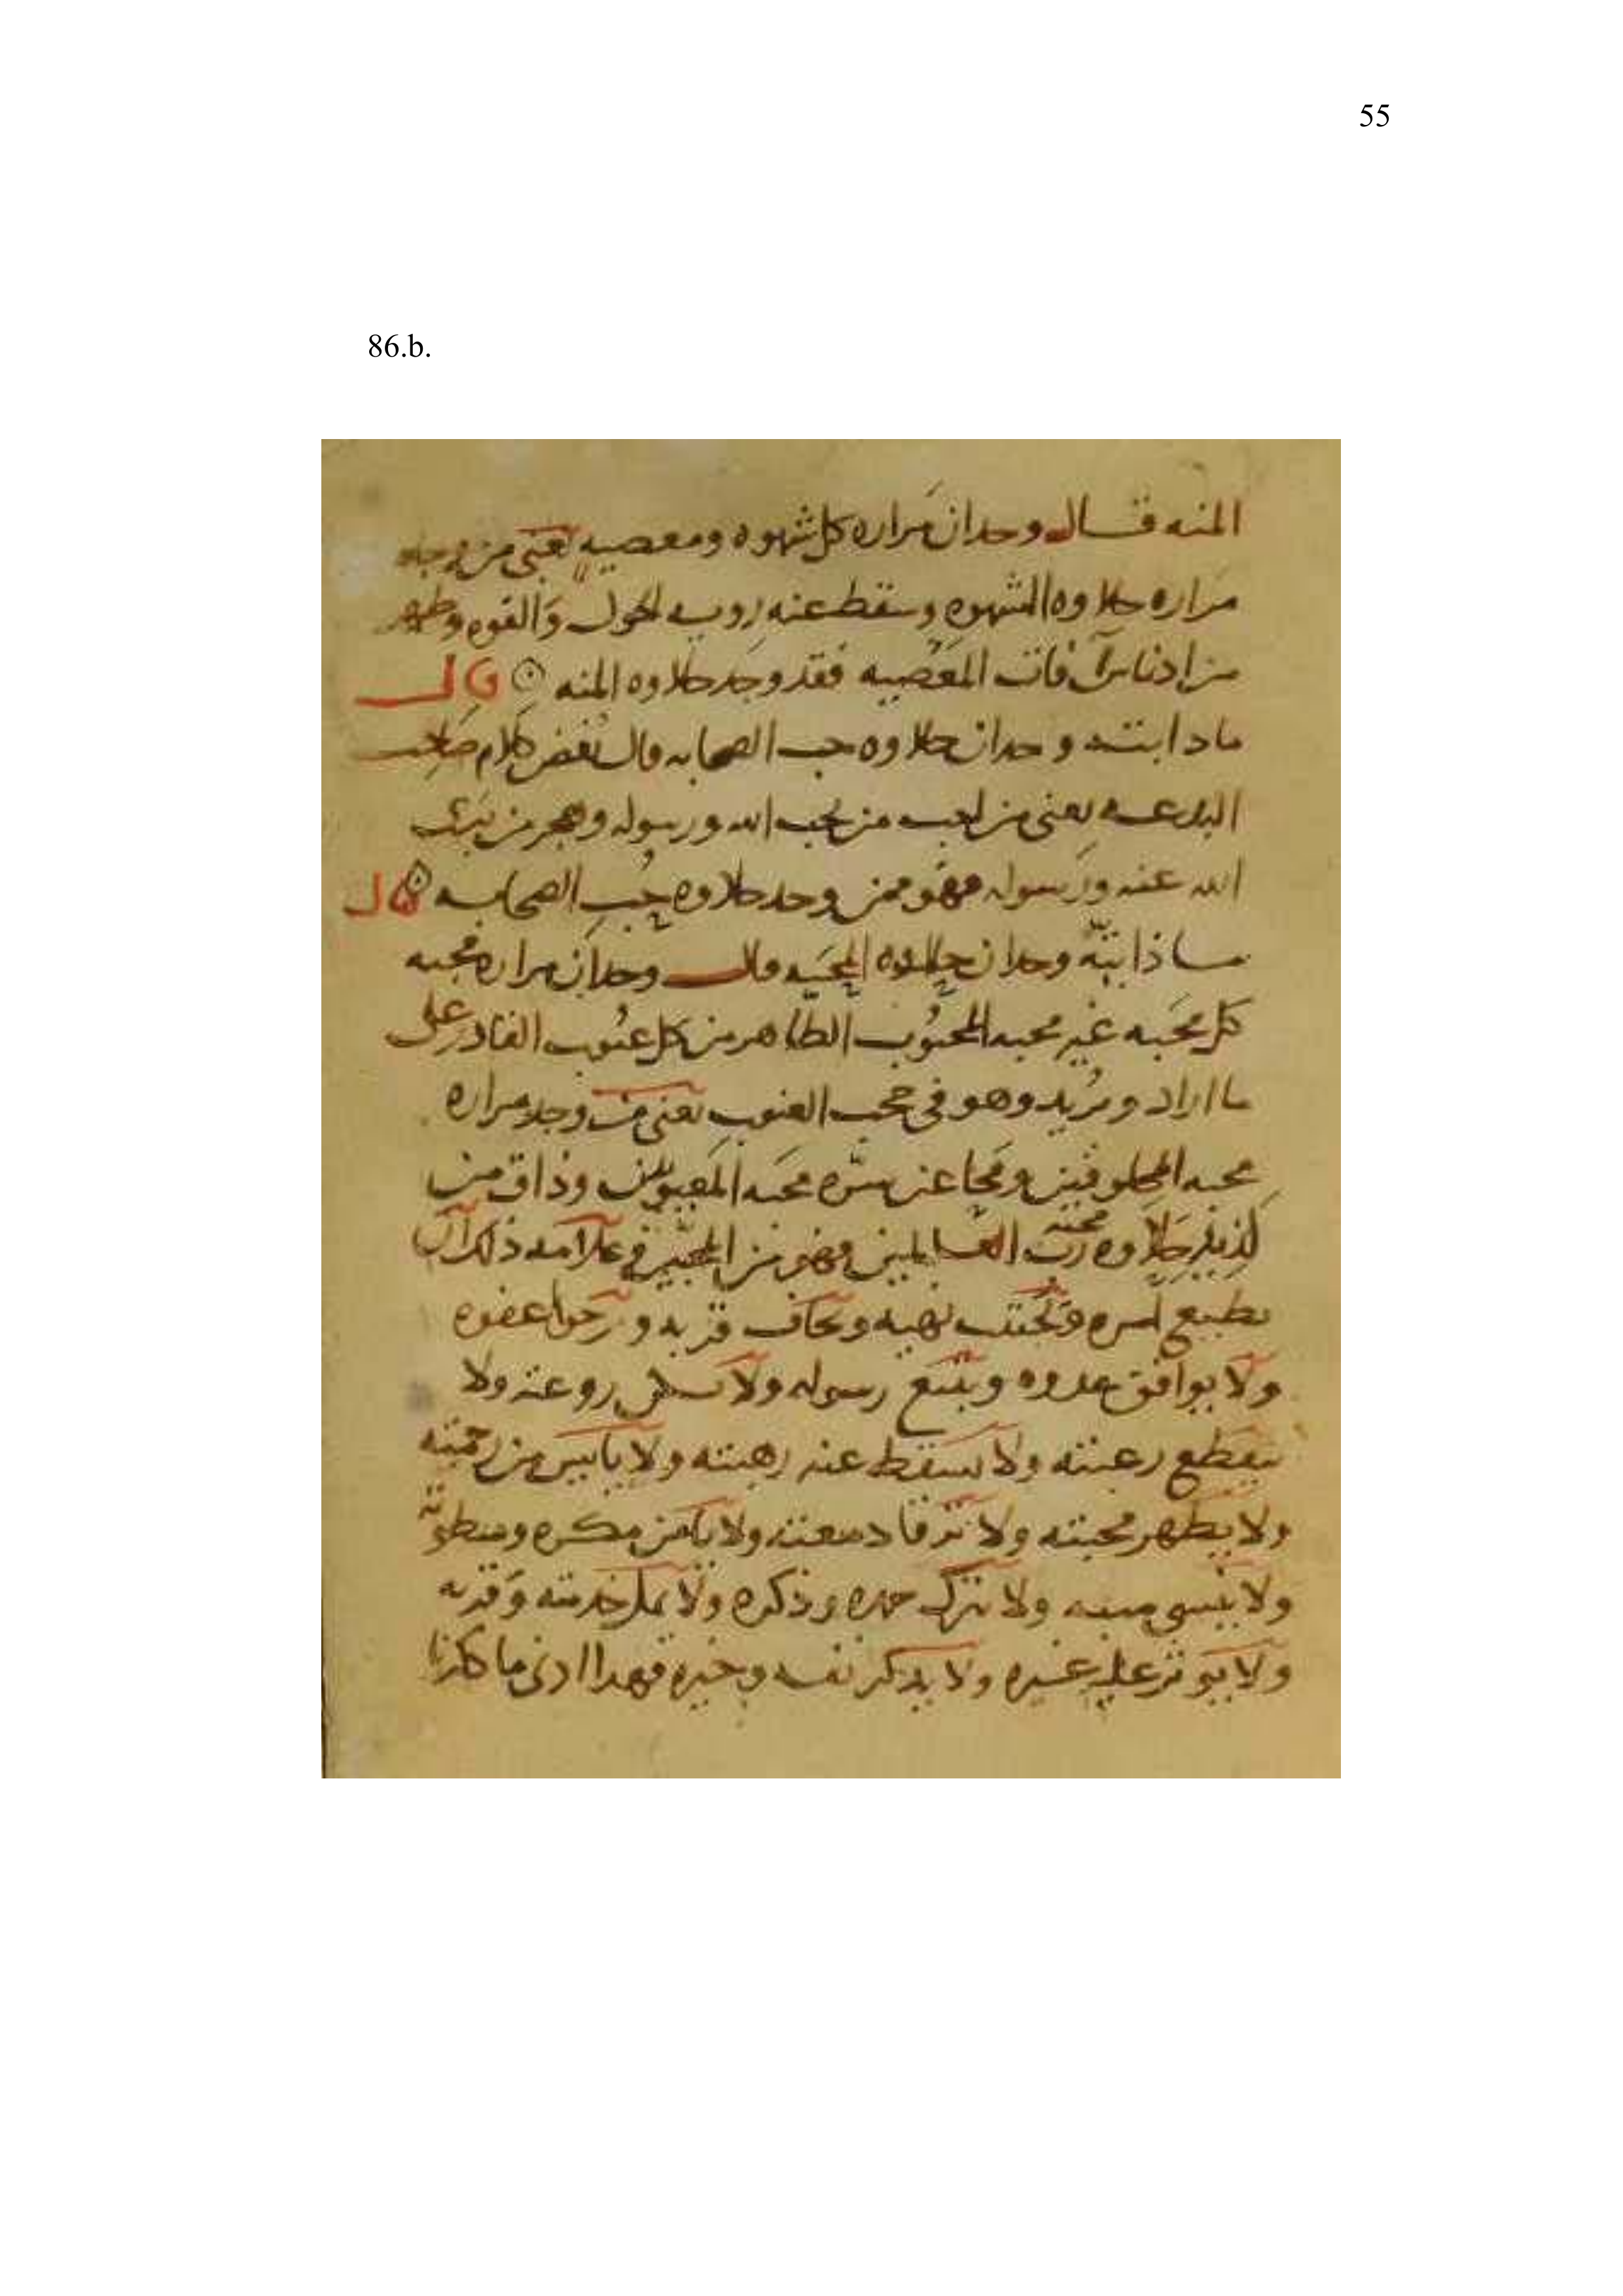 55
86.b.
المنه قال وحدان مراره كل شهوه ومعصيه يعنى من وجد
مراره حلاوه الشهوه وسقط عنه رويه الحول والقوه وطهر
من ادناس آفات المعصيه فقد وجد حلاوه المنه قال
ماذا بتنه وحدان حلاوه حب الصحابه قال بغض كلام صاحب
البدعه يعنى من يحب الله ورسوله وهجر من
الله عنه ورسوله فهو ممن وجد حلاوه حب الصحابه قال
ماذا وحدان حلاوه المحبه قال وحدان مراره محبه
كل محبه غير محبه المحبوب الطاهر من كل عيوب القادر على
ما اراد ويريد وهو فى حجب الغيوب يعنى من وجد مراره
محبه المخلوقين ومحا عن سره محبه المعيوبين وذاق من
لذيذ حلاوه محبة رب العالمين فهو من المحبين وعلامه ذلك ان
يطيع امره ويجتنب نهيه ويخاف قربه ويرجوا عفوه
ولا يوافق عدوه ويتبع رسوله ولا روعته ولا
ينقطع رغبته ولا يسقط عنه رهبته ولا يايس من رحمته
ولا يظهر محبته ولا ترقا دمعته ولا يامن مكره وسطوته
ولا ينسى منه ولا يترك حمده وذكره ولا يمل خدمته وقربه
ولا يوثر عليه غيره ولا يذكر نفسه وخيره فهذا ادنى ما